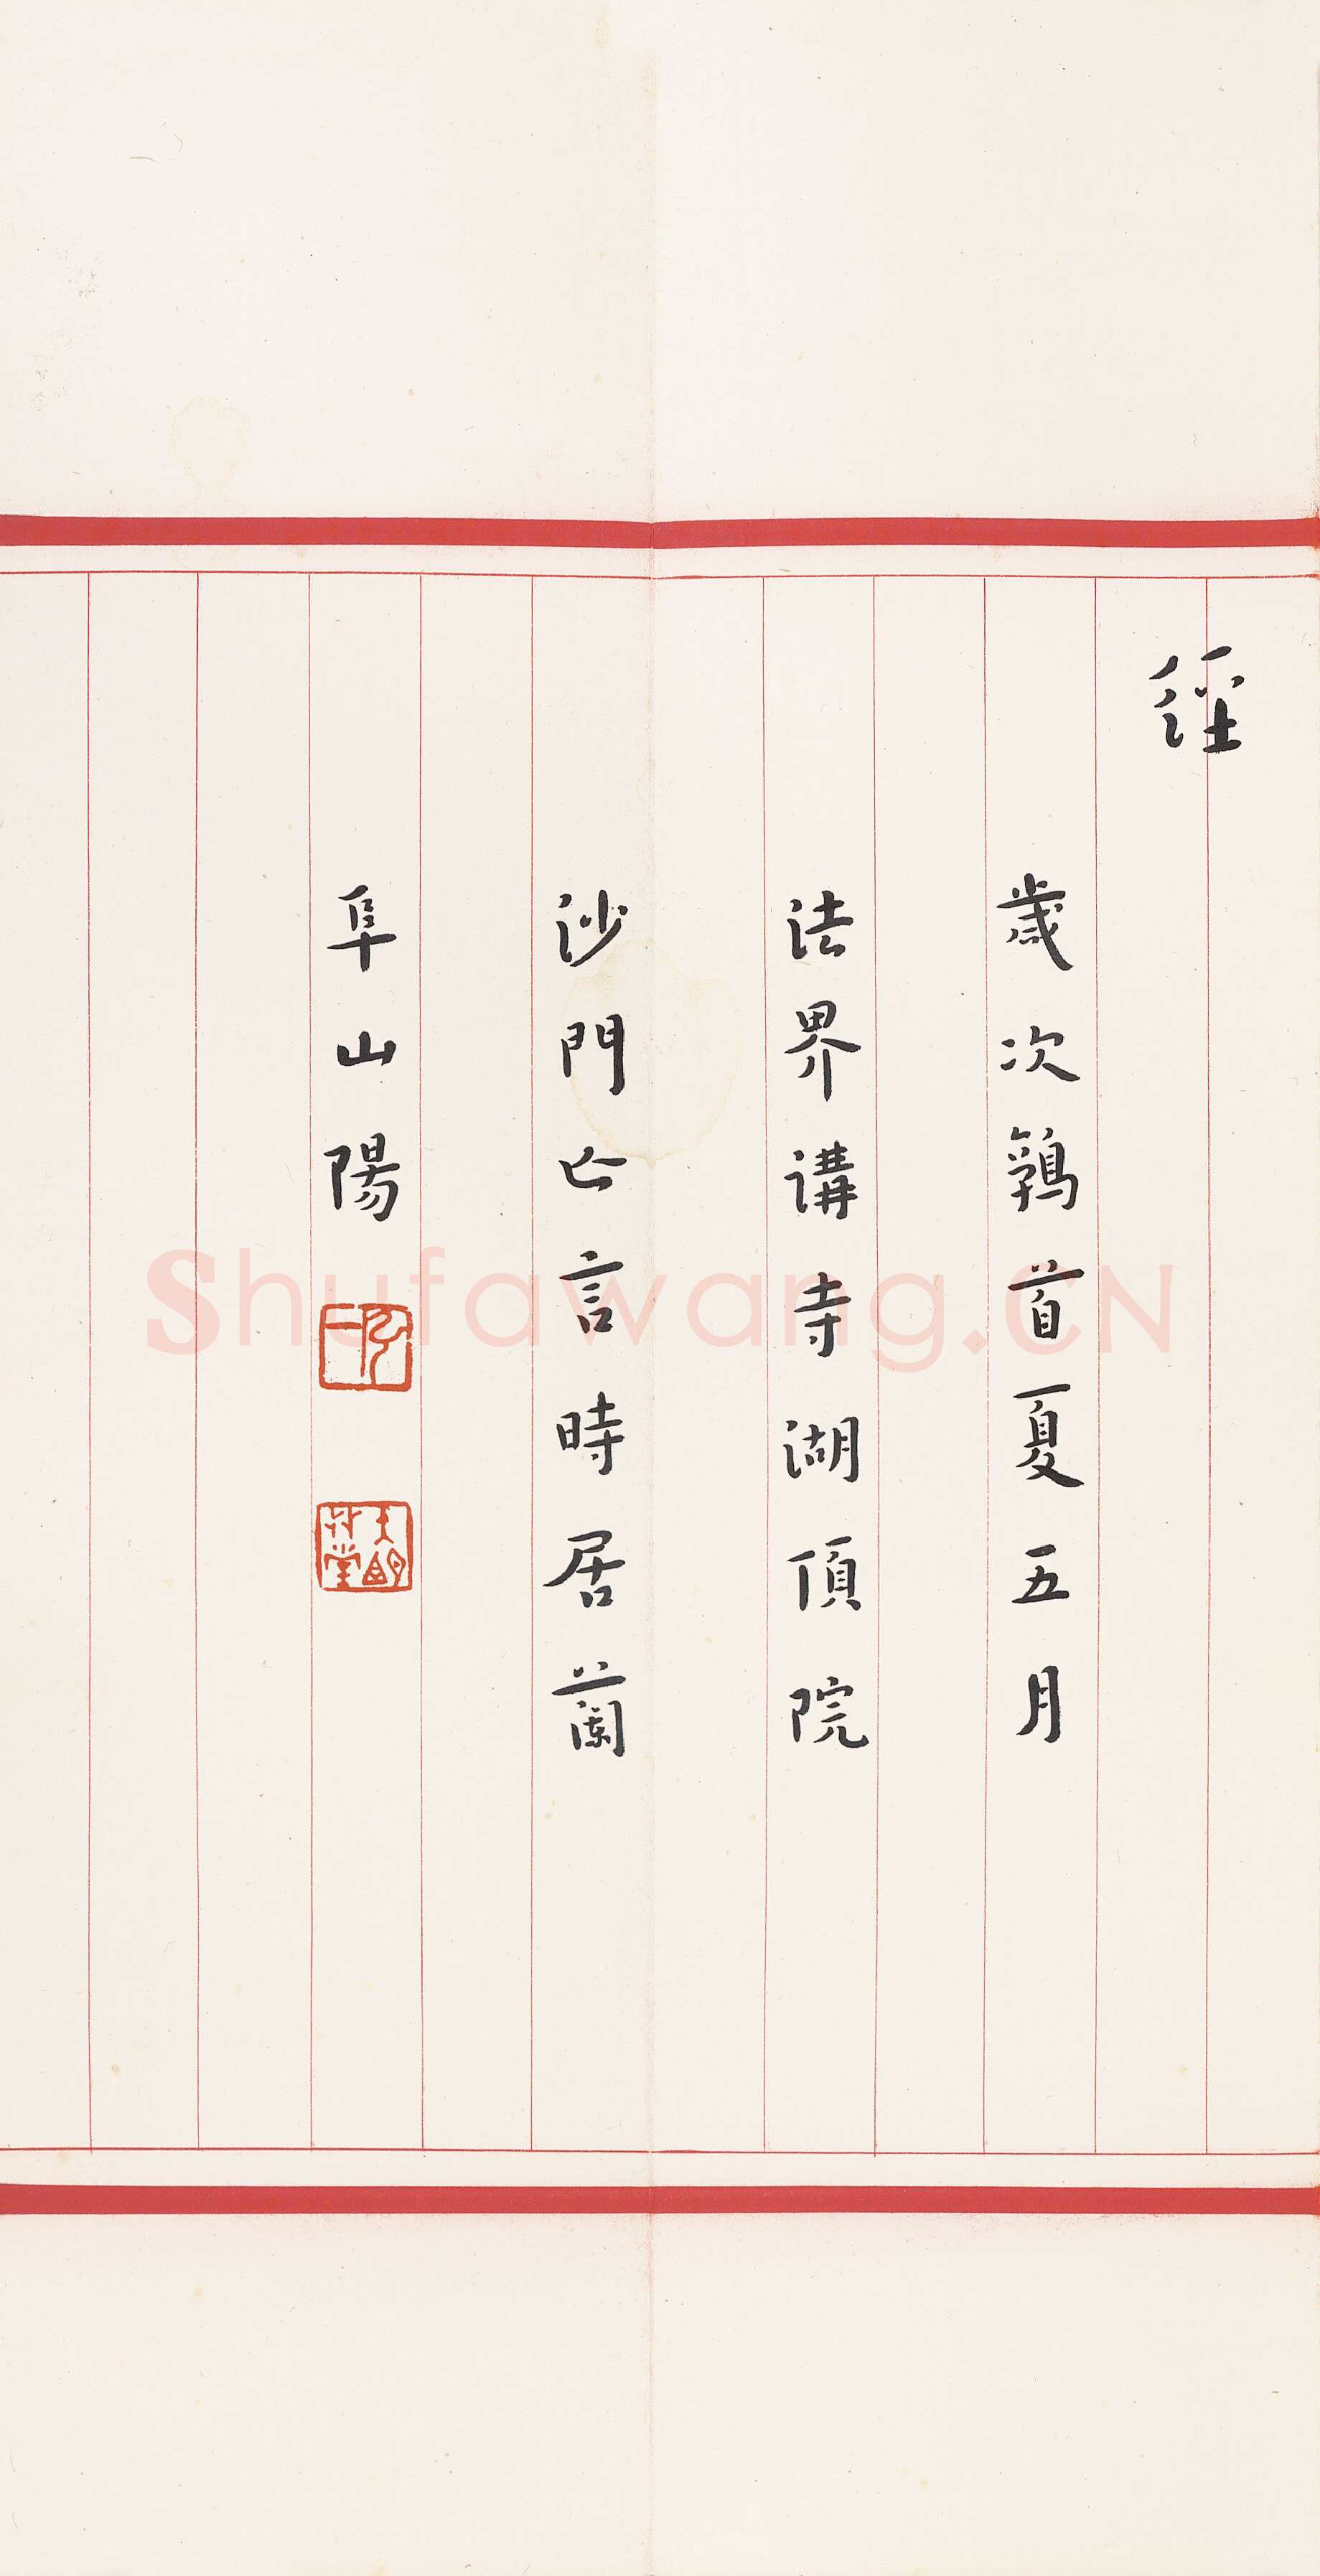 經
歲次鶉首夏五月
法界講寺湖頂院
沙門亾言時居蘭
阜山陽
弘一
Shufawang.CN